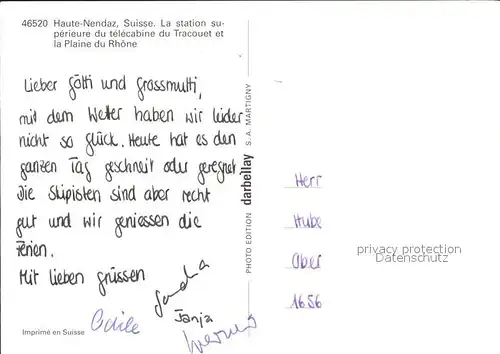 46520 Haute-Nendaz, Suisse. La station su-
périeure du télécabine du Tracouet et
la Plaine du Rhône
Lieber Götti und Grossmutti,
mit dem Wetter haben wir leider
nicht so glück. Heute hat es den
ganzen Tag geschneit oder geregnet
Die Skipisten sind aber recht
gut und wir geniessen die
Ferien.
Mit lieben grüssen
Sandra
Tanja
Odile
Werner
Imprimé en Suisse
PHOTO EDITION darbellay S.A. MARTIGNY
Herr
Hube
Ober
1656
privacy protection
Datenschutz